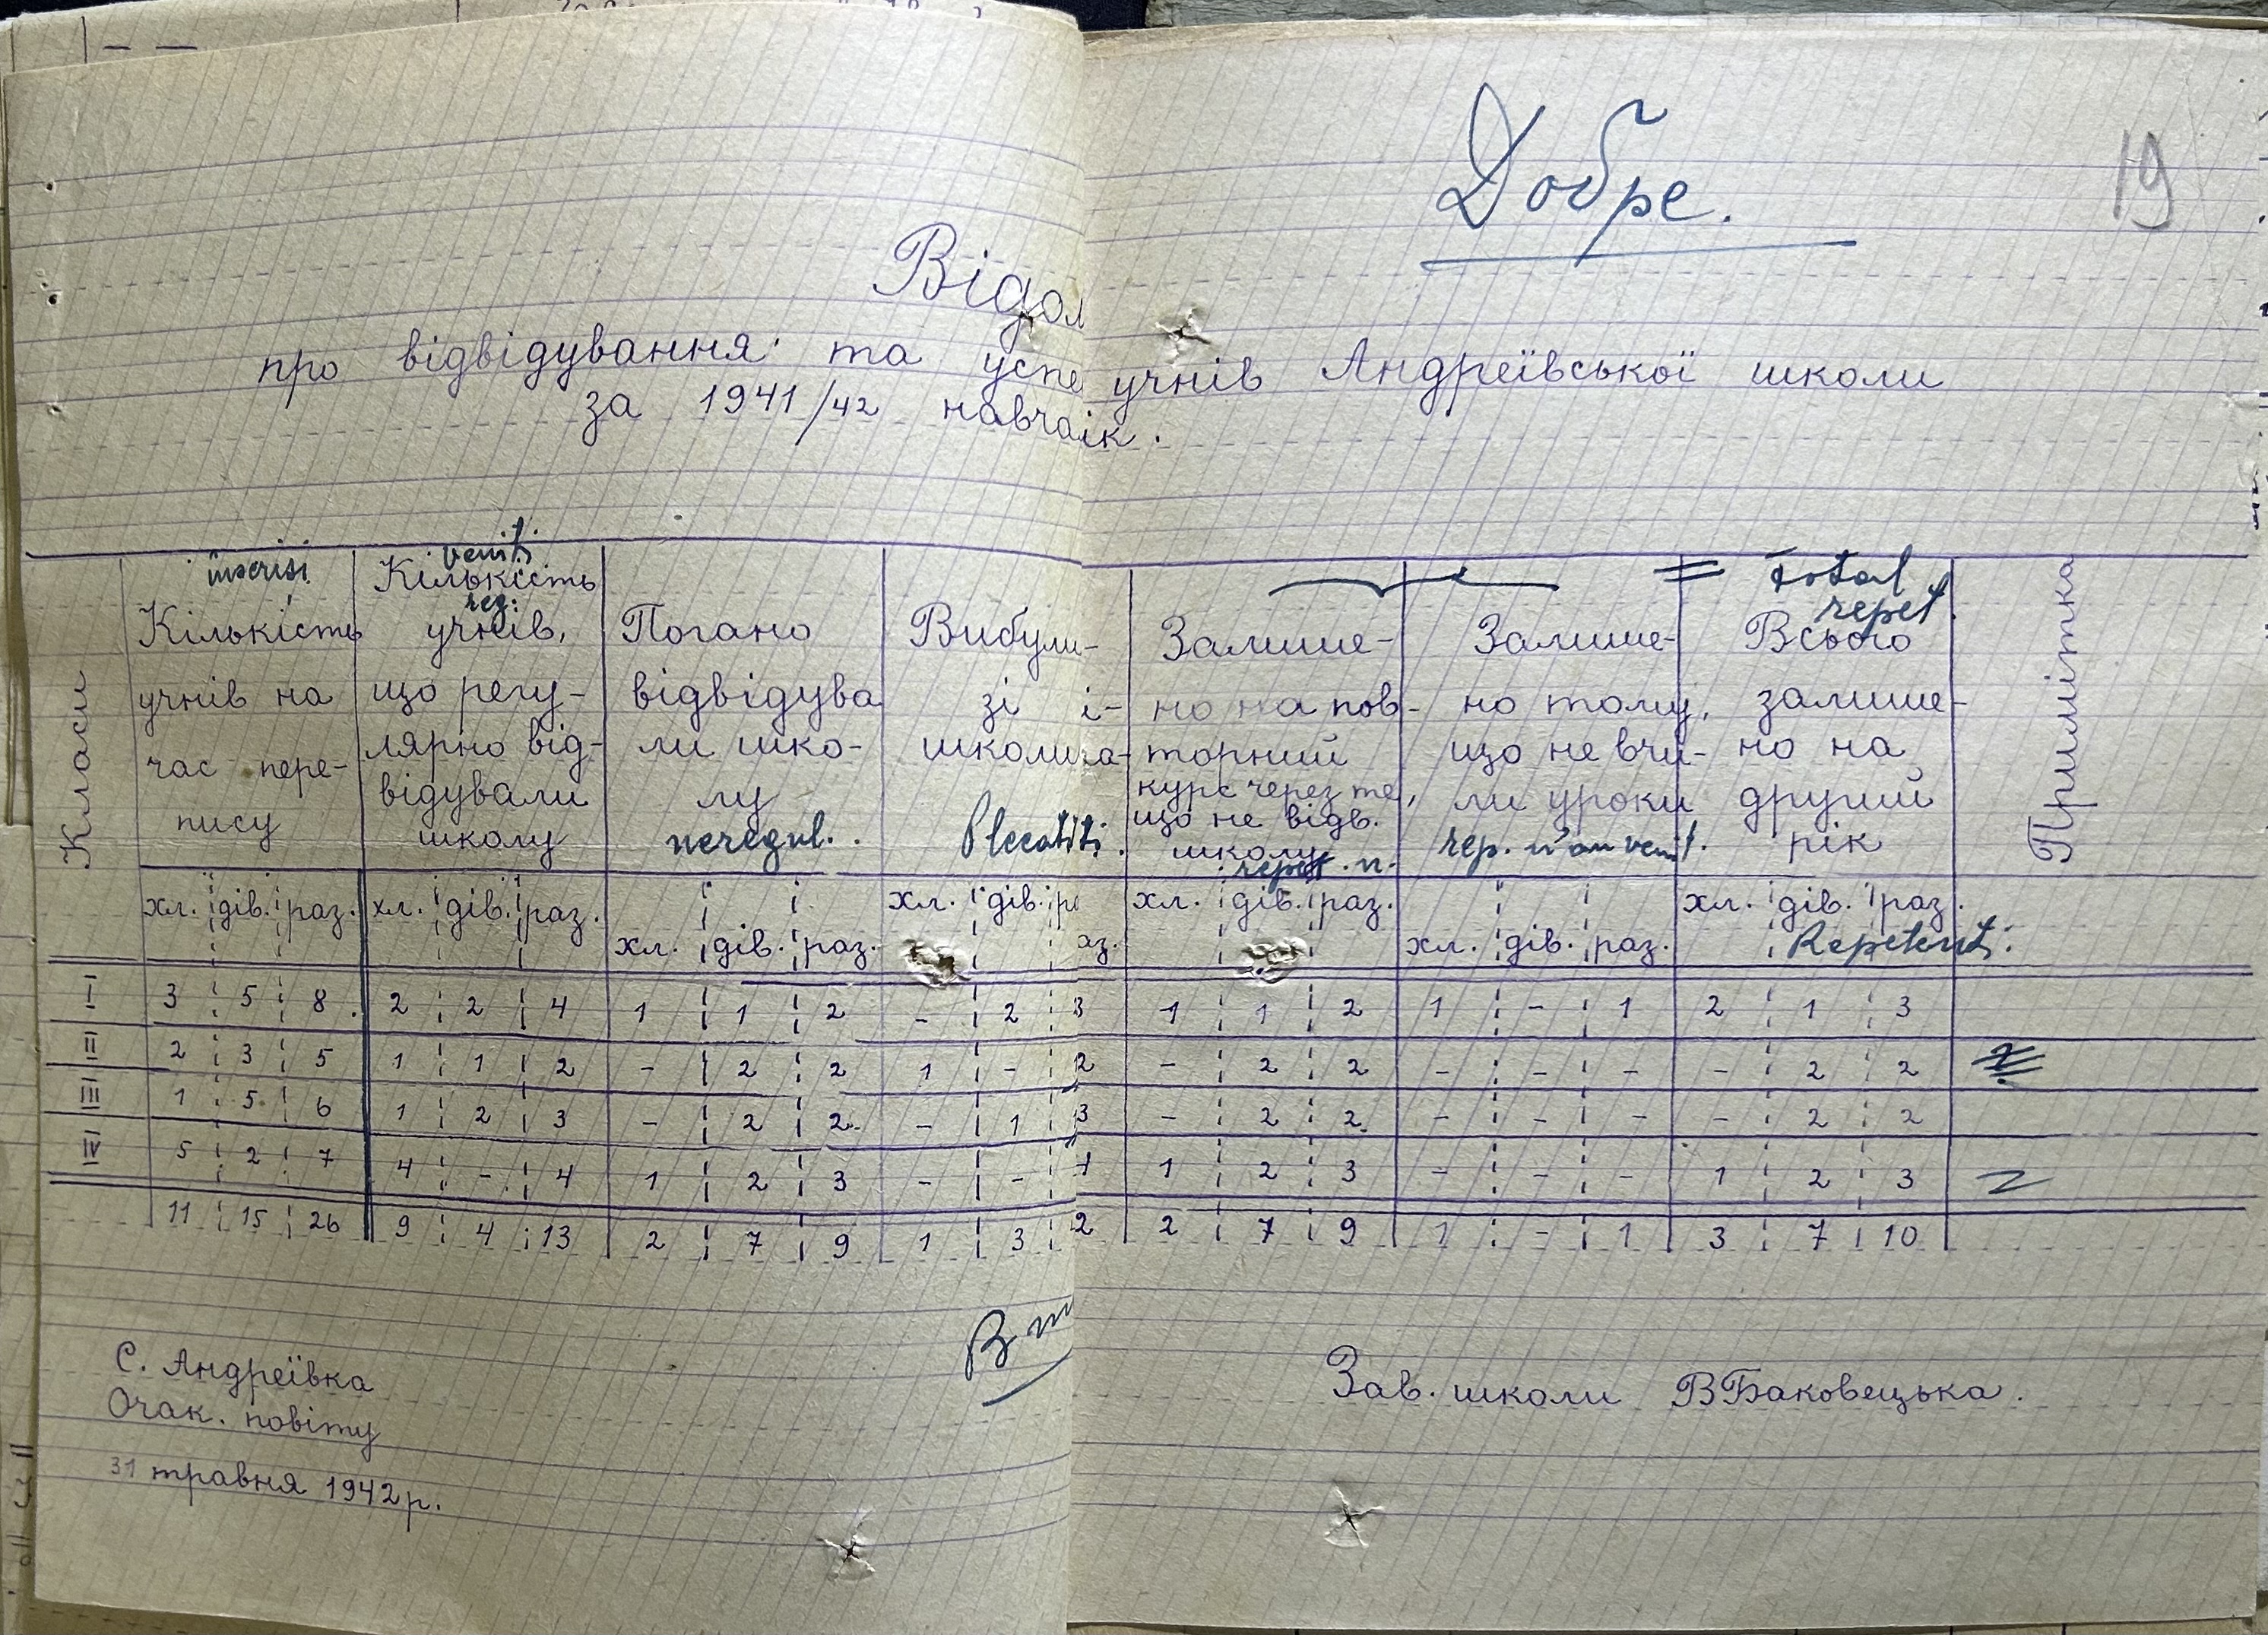 Добре.
19
Відом
про відвідування та успе учнів Андреївської школи
за 1941/42 навча ік.
Класи
înscriși
Кількість
учнів на
час пере-
пису
veniți
Кількість
reg:
учнів,
що регу-
лярно від-
відували
школу
Погано
відвідува
ли шко-
лу
neregul.
Вибули
зі
школи
Plecatiți.
Залише-
но на пов-
торний
курс через те,
що не відв.
школу
repet. n-
Залише-
но тому,
що не вчи-
ли уроки
rep. n'au venit.
= Total
repet.
Всього
залише-
но на
другий
рік
Примітка
хл. дів. раз. хл. дів. раз. хл. дів. раз. хл. дів. ра аз. хл. дів. раз. хл. дів. раз. хл. дів. раз.
Repetenti:
I 3 5 8 2 2 4 1 1 2 - 2 3 1 1 2 1 - 1 2 1 3
II 2 3 5 1 1 2 - 2 2 1 - 2 - 2 2 - - - - 2 2
III 1 5 6 1 2 3 - 2 2 - 1 3 - 2 2 - - - - 2 2
IV 5 2 7 4 - 4 1 2 3 - - 1 1 2 3 - - - 1 2 3
11 15 26 9 4 13 2 7 9 1 3 2 2 7 9 1 - 1 3 7 10
С. Андреївка
Очак. повіту
31 травня 1942р.
Зав. школи ВБаковецька.